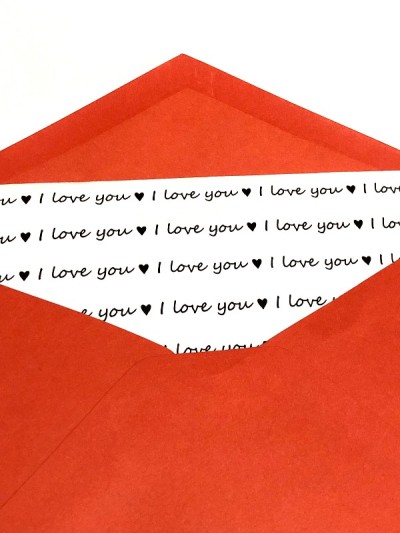 ou ♥ I love you ♥ I love you ♥ I love you ♥ I love
ou ♥ I love you ♥ I love you ♥ I love you ♥ I
♥ I love you ♥ I love you ♥ I love you ♥ I
love you ♥ I love you ♥ I love
I love you